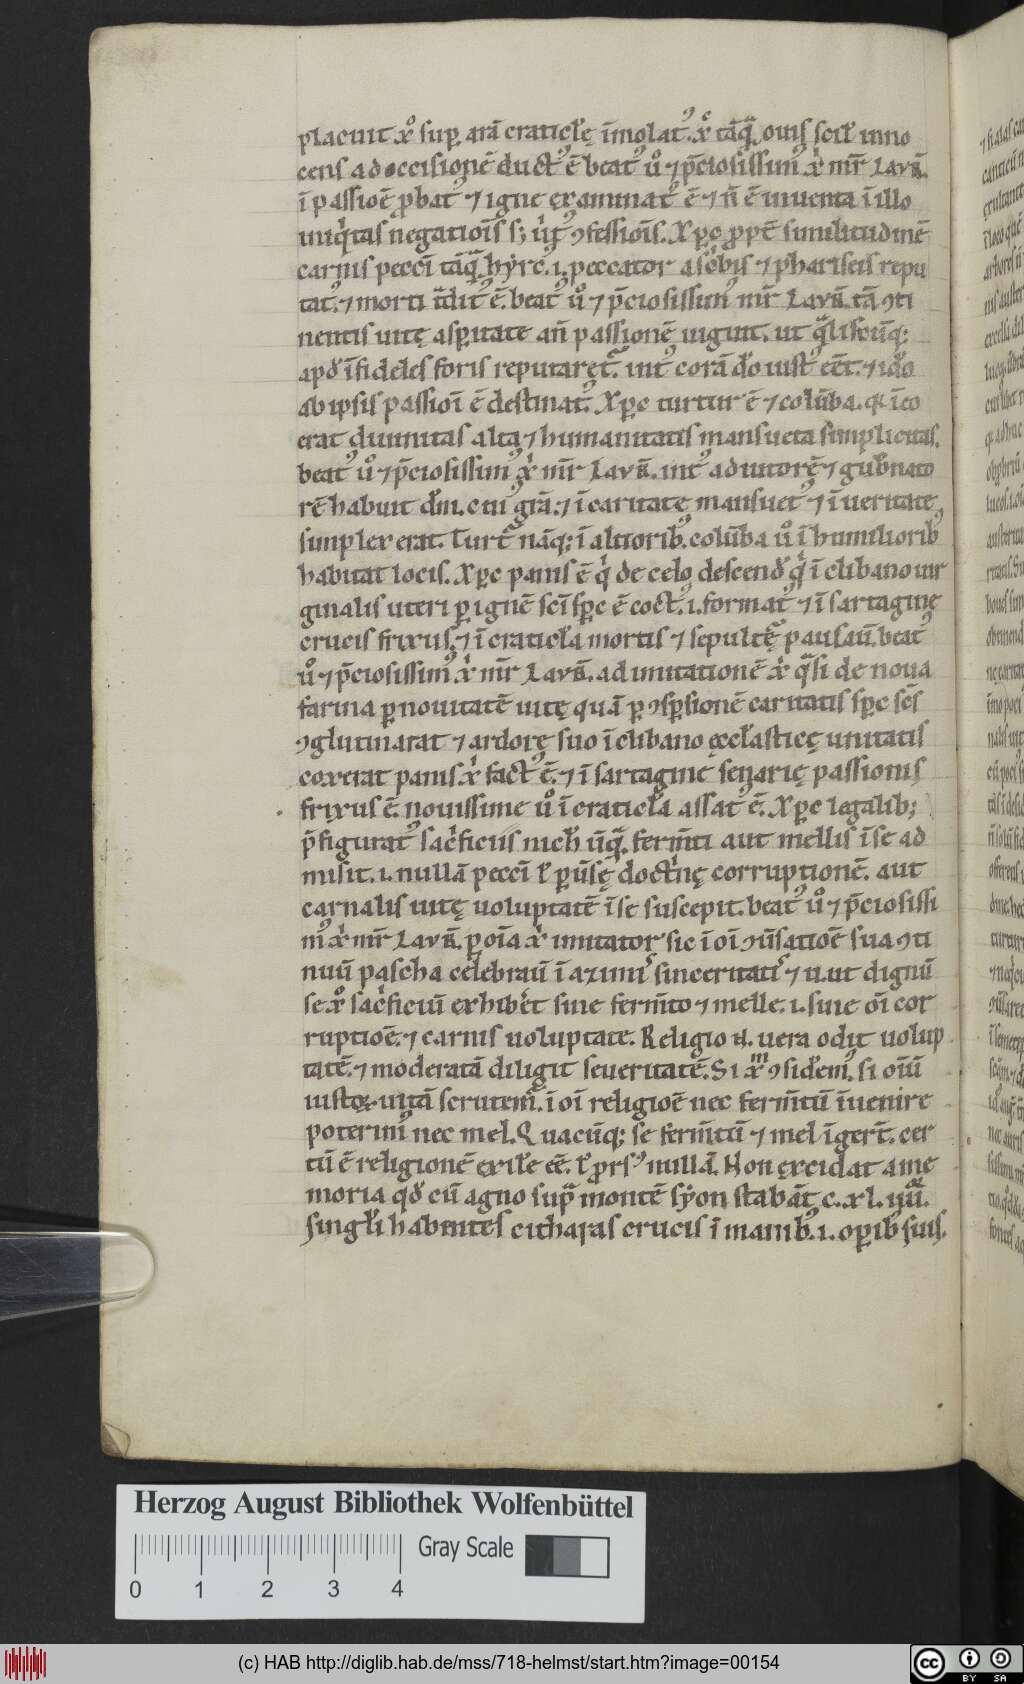 placuit xp̄o sup̲ arā craticulę īmolat᷒. xp̄c tāq̄ ouis scil̄ inno
cens ad occisionē duct᷒ ē beat᷒ u᷎ ⁊ p̄ciosissim᷒ xp̄i mr̄ Laur̄.
ī passiōē ꝓbat᷒ ⁊ igne examinat᷒ ē ⁊ n̄ ē inuenta ī illo
iniq̇tas negatiōis sꝫ ꝯfessiōis. Xp̄c ꝓpt̄ similitudinē
carnis peccī tāq̄ hyrc᷒ .i. peccator a sc̄bis ⁊ phariseis repu
tat᷒. ⁊ morti tͣdit᷒ ē. beat᷒ u᷎ ⁊ p̄ciosissim᷒ mr̄ Laur̄. tā ꝯti
nentis uitę asp̲itate an̄ passionē uiguit. ut q̄liscūq;
apd̄ īfideles foris reputaret᷑. int᷒ corā do iust᷒ eēt. ⁊ ido
ab ipsis passioī ē destinat᷒. Xp̄c turtur ē ⁊ colūba. q̄ ī eo
erat diuinitas alta ⁊ humanitatis mansueta simplicitas.
beat᷒ u᷎ ⁊ p̄ciosissim᷒ xp̄i mr̄ Laur̄. int᷒ adiutorē ⁊ gub̄nato
rē habuit dm̄. cui᷒ grā. ⁊ ī caritate mansuet᷒ ⁊ ī ueritate
simplex erat. Turt᷑ nāq; ī altiorib᷒. colūba u᷎ ī humiliorib᷒
habitat locis. Xp̄c panis ē q̇ de celo descend̄ q̇ ī clibano uir
ginalis uteri p̲ ignē sc̄i sp̄c ē coct᷒ .i. format᷒ ⁊ ī sartagine
crucis frixus. ⁊ ī craticula mortis ⁊ sepulturę pausauī. beat᷒
u᷎ ⁊ p̄ciosissim᷒ xp̄i mr̄ Laur̄. ad imitationē xp̄i q̄si de noua
farina p̲ nouitatē uitę quā p̲ ꝯsp̲sionē caritatis sp̄c sc̄s
ꝯglutinarat ⁊ ardore suo ī clibano ęccl̄asticę unitatis
coxerat panis xp̄i fact᷒ ē. ⁊ ī sartagine senarię passionis
frixus ē. nouissime u᷎ ī craticula assat᷒ ē. Xp̄c legalib;
p̄figurat᷒ sac̄ficiis nich̄ ūq̄. ferm̄ti aut mellis ī se ad
misit. .i. nullā peccī ł p̲ūsę doctrinę corruptionē. aut
carnalis uitę uoluptatē ī se suscepit. beat᷒ u᷎ ⁊ p̄ciosissi
m᷒ xp̄i mr̄ Laur̄. p̲ oīa xp̄i imitator sic ī oī ꝯūsatiōē sua ꝯti
nuū pascha celebrauī ī azimis sinceritatis ⁊ u. ut dignū
se xp̄o sac̄ficiū exhiberet sine ferm̄to ⁊ melle .i. sine oī cor
ruptiōē. ⁊ carnis uoluptate. Religio n̄. uera odit uolup
tatē. ⁊ moderatā diligit seueritatē. Si xp̄m ꝯsiderem᷒. si oīū
iustoꝝ uitā scrutem᷑. ī oī religiōē nec ferm̄tū īuenire
poterim᷒ nec mel. Quacūq; se ferm̄tū ⁊ mel īgert̄. cer
tū ē religionē exile eē. ł ꝓrs᷒ nullā. Non excidat a me
moria qd̄ cū agno supͣ montē syon stabāt c. xl. iiii.
singl̄i habentes citharas crucis ī manib᷒. .i. op̲ib᷒ suis.
Herzog August Bibliothek Wolfenbüttel
Gray Scale
0 1 2 3 4
(c) HAB http://diglib.hab.de/mss/718-helmst/start.htm?image=00154
cc BY SA